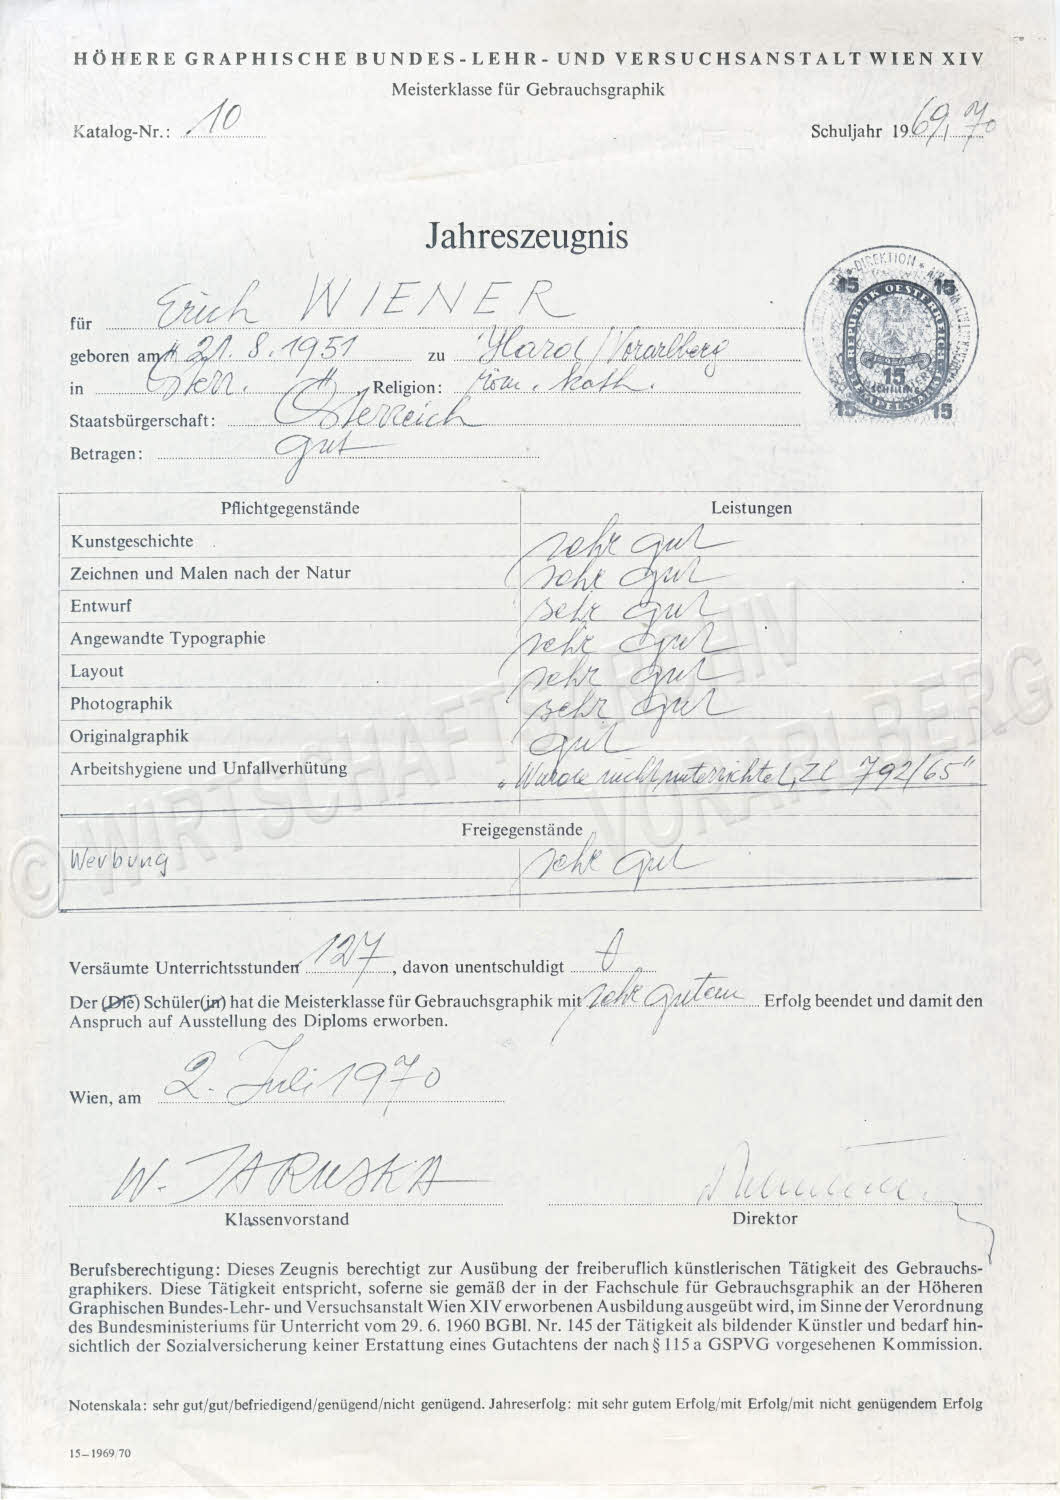 HÖHERE GRAPHISCHE BUNDES-LEHR- UND VERSUCHSANSTALT WIEN XIV
Meisterklasse für Gebrauchsgraphik
Katalog-Nr.: 10
Schuljahr 1969/70
Jahreszeugnis
für Erich WIENER
geboren am 21. 8. 1951 zu Hard/Vorarlberg
in Österr. , Religion: röm. kath.
Staatsbürgerschaft: Österreich
Betragen: gut
DIREKTION
REPUBLIK OESTERREICH
15 15
15
SCHILLING
STEMPELMARKE
15 15
Pflichtgegenstände Leistungen
Kunstgeschichte sehr gut
Zeichnen und Malen nach der Natur sehr gut
Entwurf sehr gut
Angewandte Typographie sehr gut
Layout sehr gut
Photographik sehr gut
Originalgraphik gut
Arbeitshygiene und Unfallverhütung „Wurde nicht unterrichtet, Zl 792/65"
Freigegenstände
Werbung sehr gut
Versäumte Unterrichtsstunden 127, davon unentschuldigt 0
Der (Die) Schüler(in) hat die Meisterklasse für Gebrauchsgraphik mit sehr gutem Erfolg beendet und damit den
Anspruch auf Ausstellung des Diploms erworben.
Wien, am 2. Juli 1970
W. JARUSKA
Klassenvorstand Direktor
Berufsberechtigung: Dieses Zeugnis berechtigt zur Ausübung der freiberuflich künstlerischen Tätigkeit des Gebrauchs-
graphikers. Diese Tätigkeit entspricht, soferne sie gemäß der in der Fachschule für Gebrauchsgraphik an der Höheren
Graphischen Bundes-Lehr- und Versuchsanstalt Wien XIV erworbenen Ausbildung ausgeübt wird, im Sinne der Verordnung
des Bundesministeriums für Unterricht vom 29. 6. 1960 BGBl. Nr. 145 der Tätigkeit als bildender Künstler und bedarf hin-
sichtlich der Sozialversicherung keiner Erstattung eines Gutachtens der nach § 115 a GSPVG vorgesehenen Kommission.
Notenskala: sehr gut/gut/befriedigend/genügend/nicht genügend. Jahreserfolg: mit sehr gutem Erfolg/mit Erfolg/mit nicht genügendem Erfolg
15–1969/70
© WIRTSCHAFTSARCHIV
VORARLBERG